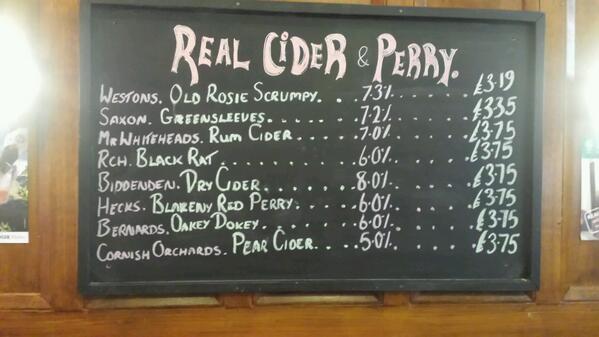 REAL CIDER & PERRY.
WESTONS. OLD ROSIE SCRUMPY. . . 7.3%. . . . . . £3.19
SAXON. GREENSLEEVES. . . . . . 7.2%. . . . . . £3.35
MR WHITEHEADS. RUM CIDER. . . . 7.0%. . . . . . £3.75
RCH. BLACK RAT. . . . . . . . 6.0%. . . . . . £3.75
BIDDENDEN. DRY CIDER. . . . . . 8.0%. . . . . . £3.75
HECKS. BLAKENY RED PERRY. . . . 6.0%. . . . . . £3.75
BERNARDS. OAKEY DOKEY. . . . . 6.0%. . . . . . £3.75
CORNISH ORCHARDS. PEAR CIDER. . . . 5.0%. . . . . . £3.75